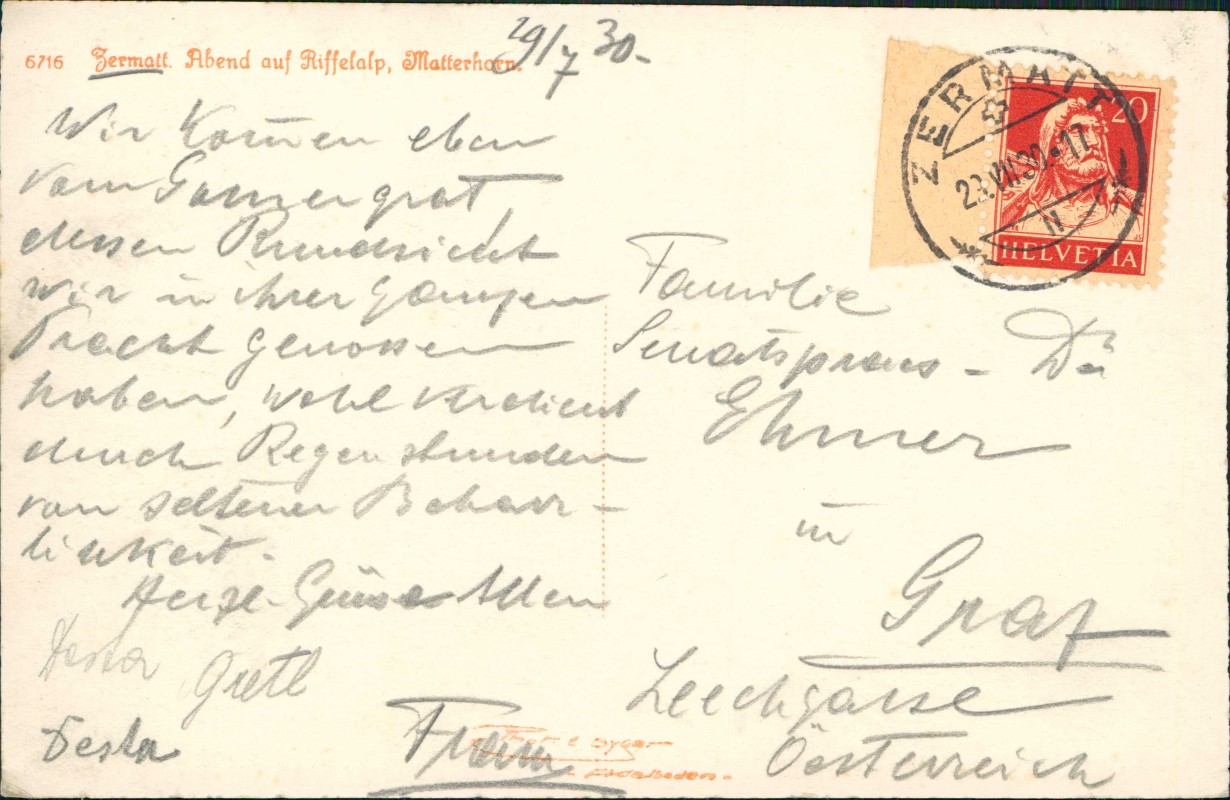 6716 Zermatt. Abend auf Riffelalp, Matterhorn.
29/7 30.-
Wir kom̄en eben
vom Gornergrat,
dessen Rundsicht
wir in ihrer ganzen
Pracht genossen
haben, wohl verdient
durch Regenstunden
von seltener Beharr-
lichkeit.
Herzl. Grüße Allen
Gretl
Franz
ZERMATT
29.VII.30.-17
20
HELVETIA
Familie
Senatspraes - Dr
Ehmer
in
Graz
Leechgasse
Österreich